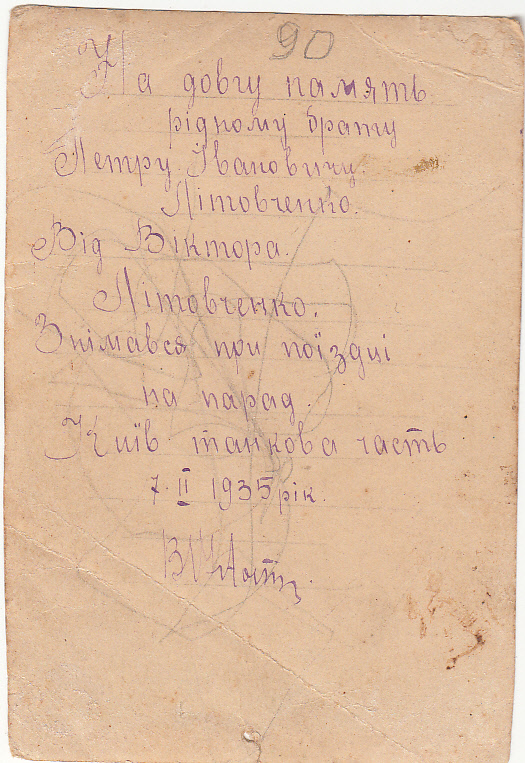 90
На довгу память
рідному брату
Петру Івановичу.
Літовченко.
Від Віктора.
Літовченко.
Знімався при поїздці
на парад
Київ танкова часть
7. II 1935 рік.